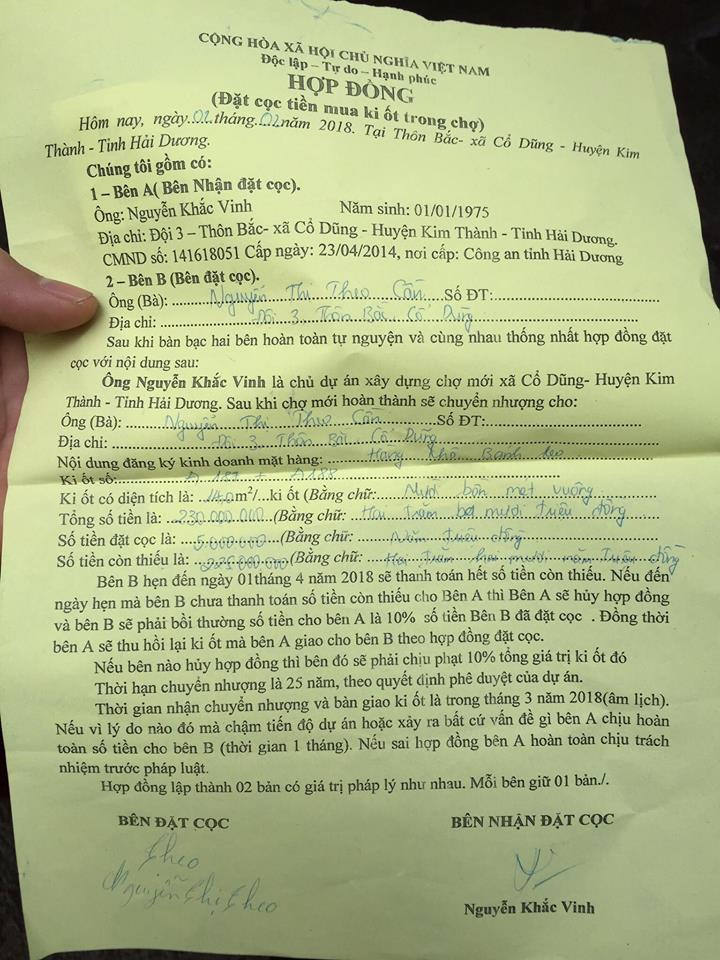 CỘNG HÒA XÃ HỘI CHỦ NGHĨA VIỆT NAM
Độc lập – Tự do – Hạnh phúc
HỢP ĐỒNG
(Đặt cọc tiền mua ki ốt trong chợ)
Hôm nay, ngày.02.tháng.02năm 2018. Tại Thôn Bắc- xã Cổ Dũng - Huyện Kim
Thành - Tỉnh Hải Dương.
Chúng tôi gồm có:
1 – Bên A( Bên Nhận đặt cọc).
Ông: Nguyễn Khắc Vinh Năm sinh: 01/01/1975
Địa chỉ: Đội 3 – Thôn Bắc- xã Cổ Dũng - Huyện Kim Thành - Tỉnh Hải Dương.
CMND số: 141618051 Cấp ngày: 23/04/2014, nơi cấp: Công an tỉnh Hải Dương
2 – Bên B (Bên đặt cọc).
Ông (Bà): Nguyễn Thị Theo Số ĐT:
Địa chỉ: Đội 3, Thôn Bắc, Cổ Dũng
Sau khi bàn bạc hai bên hoàn toàn tự nguyện và cùng nhau thống nhất hợp đồng đặt
cọc với nội dung sau:
Ông Nguyễn Khắc Vinh là chủ dự án xây dựng chợ mới xã Cổ Dũng- Huyện Kim
Thành - Tỉnh Hải Dương. Sau khi chợ mới hoàn thành sẽ chuyển nhượng cho:
Ông (Bà): Nguyễn Thị Theo Số ĐT:
Địa chỉ: Đội 3, Thôn Bắc, Cổ Dũng
Nội dung đăng ký kinh doanh mặt hàng: Hàng Khô Bánh kẹo
Ki ốt số:
Ki ốt có diện tích là: 14.0m²/...ki ốt (Bằng chữ: Mười bốn mét vuông
Tổng số tiền là: 230.000.000 (Bằng chữ: Hai trăm ba mươi triệu đồng
Số tiền đặt cọc là: 5.000.000 (Bằng chữ: Năm triệu đồng
Số tiền còn thiếu là: 225.000.000 (Bằng chữ: Hai trăm hai mươi năm triệu đồng
Bên B hẹn đến ngày 01tháng 4 năm 2018 sẽ thanh toán hết số tiền còn thiếu. Nếu đến
ngày hẹn mà bên B chưa thanh toán số tiền còn thiếu cho Bên A thì Bên A sẽ hủy hợp đồng
và bên B sẽ phải bồi thường số tiền cho bên A là 10% số tiền Bên B đã đặt cọc . Đồng thời
bên A sẽ thu hồi lại ki ốt mà bên A giao cho bên B theo hợp đồng đặt cọc.
Nếu bên nào hủy hợp đồng thì bên đó sẽ phải chịu phạt 10% tổng giá trị ki ốt đó
Thời hạn chuyển nhượng là 25 năm, theo quyết định phê duyệt của dự án.
Thời gian nhận chuyển nhượng và bàn giao ki ốt là trong tháng 3 năm 2018(âm lịch).
Nếu vì lý do nào đó mà chậm tiến độ dự án hoặc xảy ra bất cứ vấn đề gì bên A chịu hoàn
toàn số tiền cho bên B (thời gian 1 tháng). Nếu sai hợp đồng bên A hoàn toàn chịu trách
nhiệm trước pháp luật.
Hợp đồng lập thành 02 bản có giá trị pháp lý như nhau. Mỗi bên giữ 01 bản./.
BÊN ĐẶT CỌC BÊN NHẬN ĐẶT CỌC
Theo
Nguyễn Thị Theo
Nguyễn Khắc Vinh